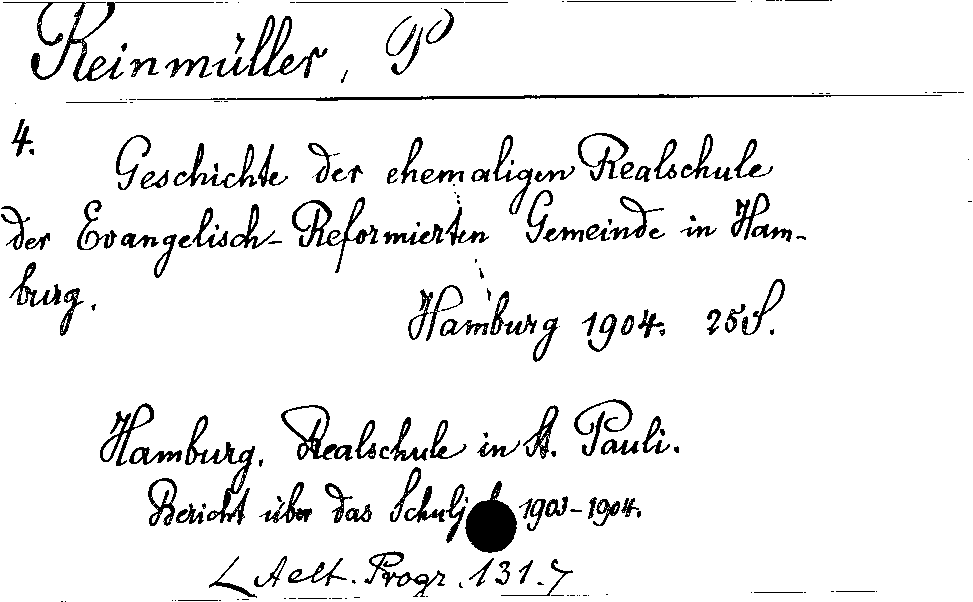 Reinmüller, P
4.
Geschichte der ehemaligen Realschule
der Evangelisch-Reformierten Gemeinde in Ham-
burg.
Hamburg 1904. 25 S.
Hamburg. Realschule in St. Pauli.
Bericht über das Schulj 1903-1904.
Aelt. Progr. 131.